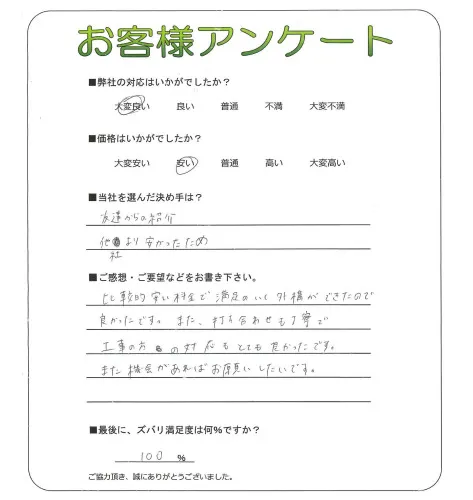 お客様アンケート
■弊社の対応はいかがでしたか？
大変良い 良い 普通 不満 大変不満
■価格はいかがでしたか？
大変安い 安い 普通 高い 大変高い
■当社を選んだ決め手は？
友達からの紹介
他社より安かったため
■ご感想・ご要望などをお書き下さい。
比較的安い料金で満足のいく外構ができたので
良かったです。また、打ち合わせも丁寧で
工事の方の対応もとても良かったです。
また機会があればお願いしたいです。
■最後に、ズバリ満足度は何%ですか？
100 %
ご協力頂き、誠にありがとうございました。